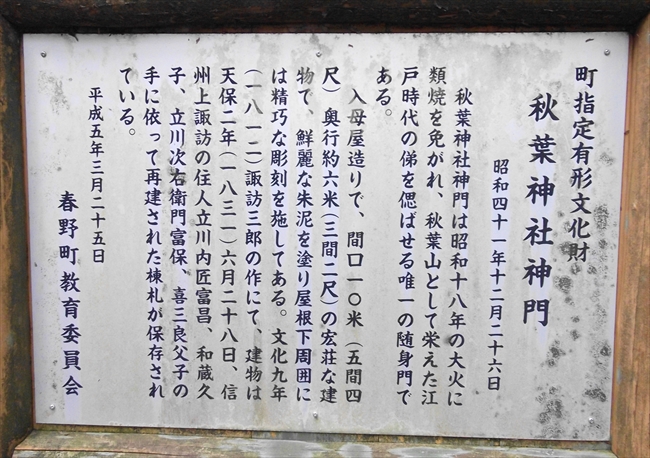 町指定有形文化財
秋葉神社神門
昭和四十一年十二月二十六日
秋葉神社神門は昭和十八年の大火に
類焼を免がれ、秋葉山として栄えた江
戸時代の俤を偲ばせる唯一の随身門で
ある。
入母屋造りで、間口一〇米（五間四
尺）奥行約六米（三間二尺）の宏荘な建
物で、鮮麗な朱泥を塗り屋根下周囲に
は精巧な彫刻を施してある。文化九年
（一八一二）諏訪三郎の作にて、建物は
天保二年（一八三一）六月二十八日、信
州上諏訪の住人立川内匠富昌、和蔵久
子、立川次右衛門富保、喜三良父子の
手に依って再建された棟札が保存され
ている。
平成五年三月二十五日
春野町教育委員会